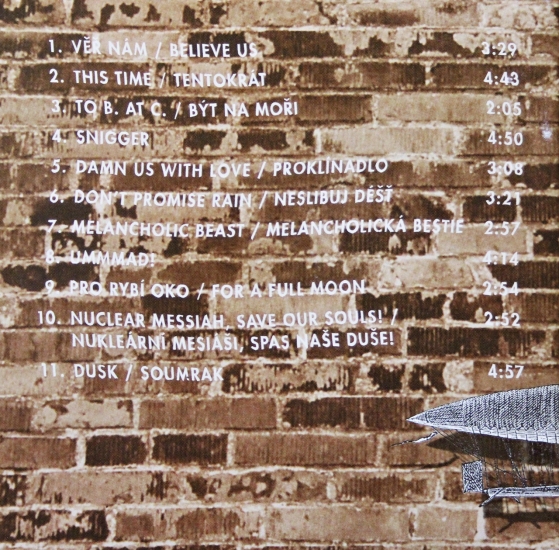 1. VĚŘ NÁM / BELIEVE US 3:29
2. THIS TIME / TENTOKRÁT 4:43
3. TO B. AT C. / BÝT NA MOŘI 2:05
4. SNIGGER 4:50
5. DAMN US WITH LOVE / PROKLÍNADLO 3:08
6. DON'T PROMISE RAIN / NESLIBUJ DÉŠŤ 3:21
7. MELANCHOLIC BEAST / MELANCHOLICKÁ BESTIE 2:57
8. UMMMAD! 4:14
9. PRO RYBÍ OKO / FOR A FULL MOON 2:54
10. NUCLEAR MESSIAH, SAVE OUR SOULS! / 2:52
NUKLEÁRNÍ MESIÁŠI, SPAS NAŠE DUŠE!
11. DUSK / SOUMRAK 4:57